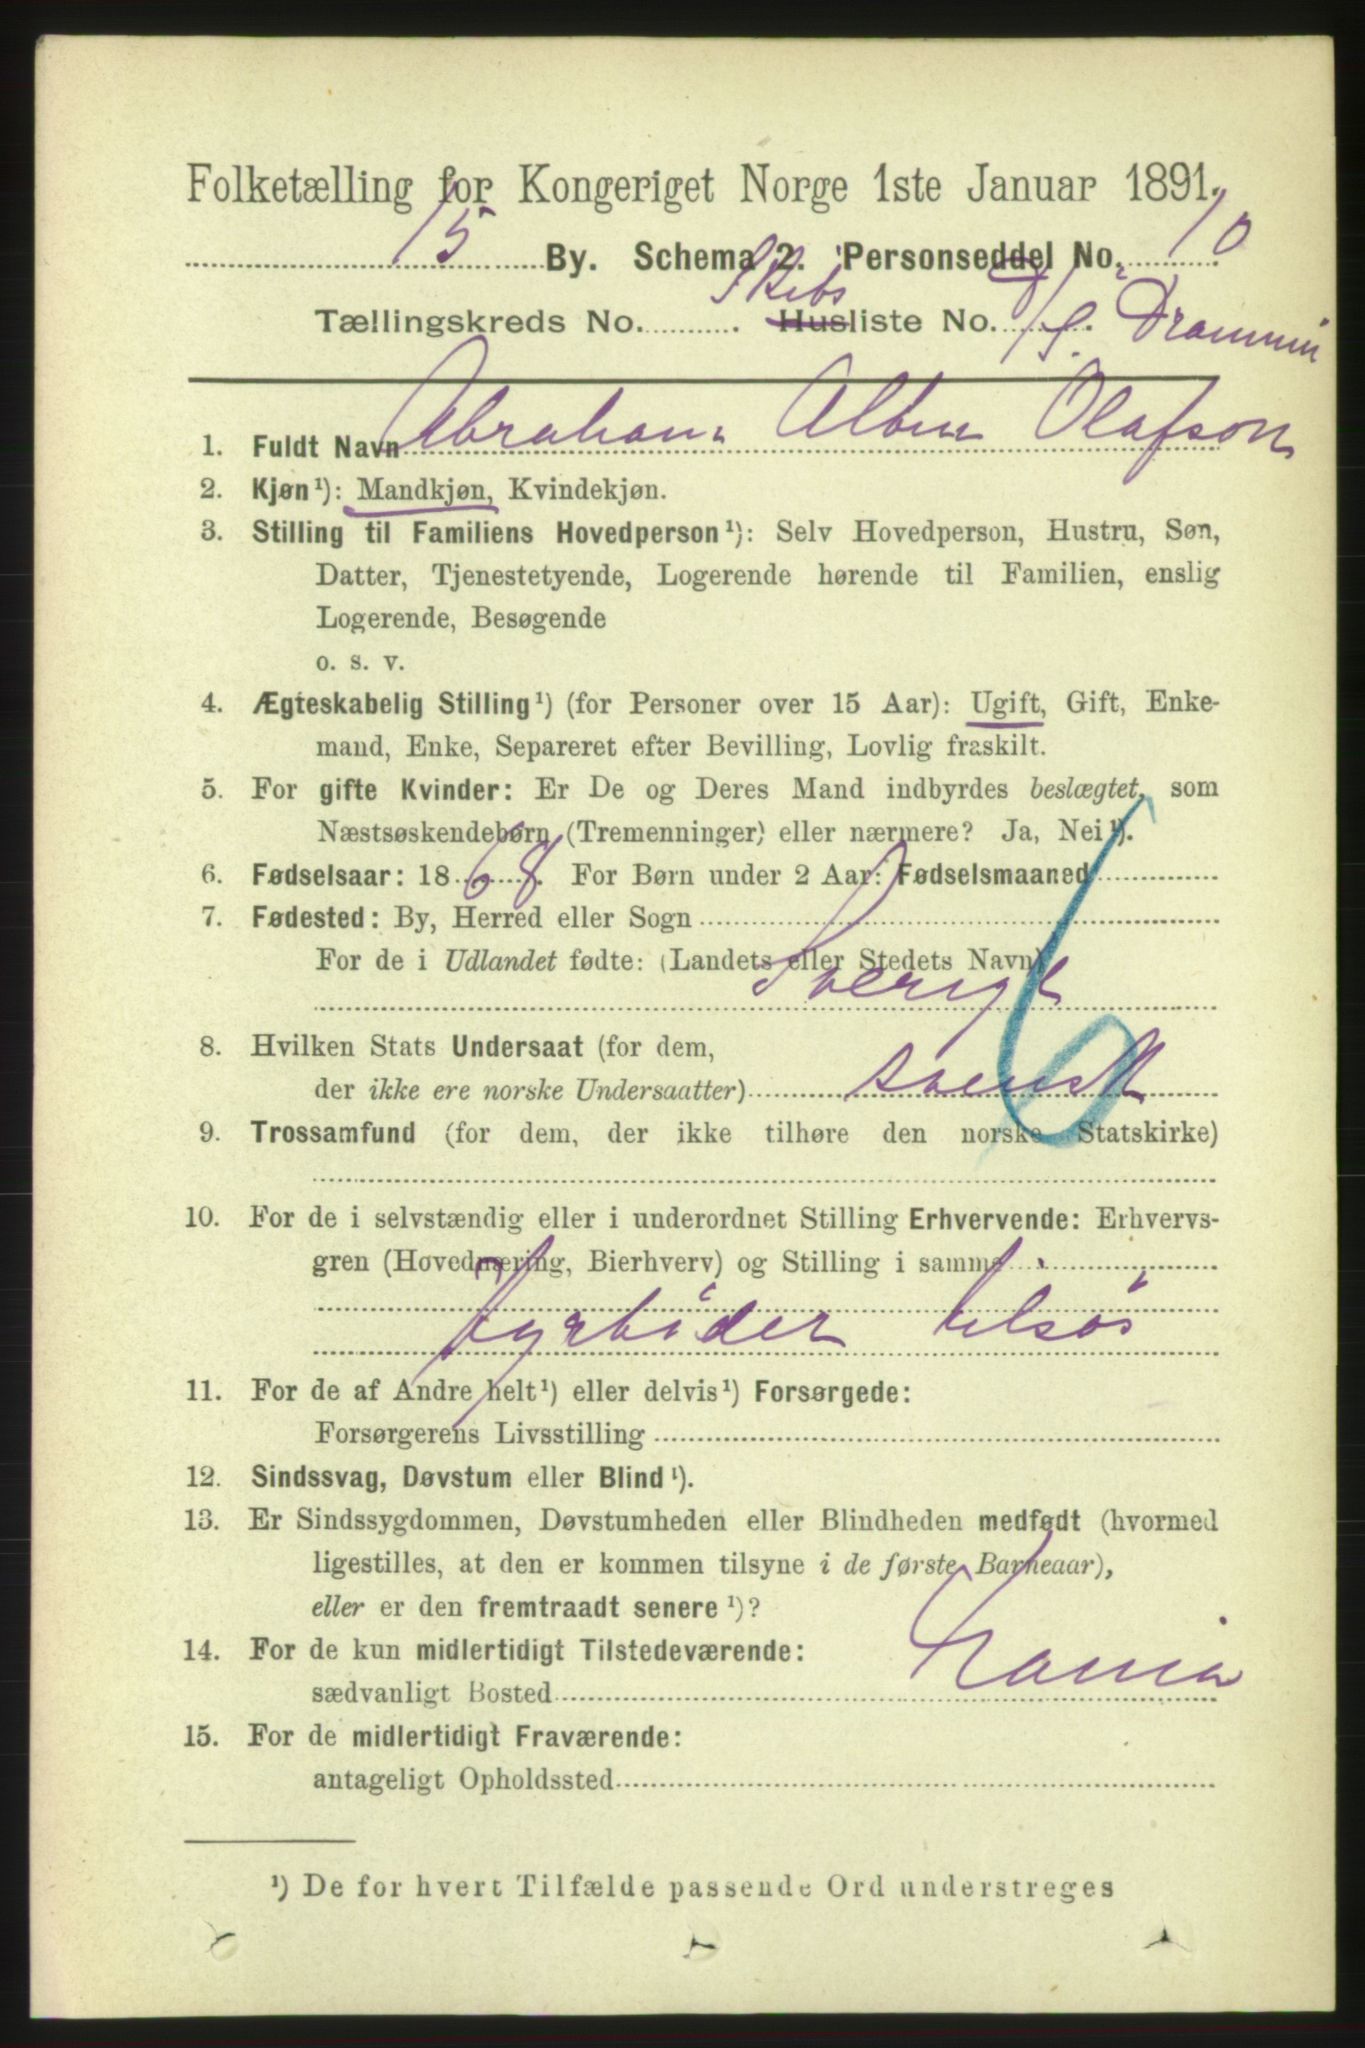 Folketælling for Kongeriget Norge 1ste Januar 1891.
15 By. Schema 2. Personseddel No. 10
Tællingskreds No. Skibs Husliste No. D/S. Drammen
1. Fuldt Navn Abraham Olafson
2. Kjøn¹): Mandkjøn, Kvindekjøn.
3. Stilling til Familiens Hovedperson¹): Selv Hovedperson, Hustru, Søn,
Datter, Tjenestetyende, Logerende hørende til Familien, enslig
Logerende, Besøgende
o. s. v.
4. Ægteskabelig Stilling¹) (for Personer over 15 Aar): Ugift, Gift, Enke-
mand, Enke, Separeret efter Bevilling, Lovlig fraskilt.
5. For gifte Kvinder: Er De og Deres Mand indbyrdes beslægtet, som
Næstsøskendebørn (Tremenninger) eller nærmere? Ja, Nei¹).
6. Fødselsaar: 1868. For Børn under 2 Aar: Fødselsmaaned
7. Fødested: By, Herred eller Sogn
For de i Udlandet fødte: (Landets eller Stedets Navn)
Sverige
8. Hvilken Stats Undersaat (for dem,
der ikke ere norske Undersaatter) svensk
6
9. Trossamfund (for dem, der ikke tilhøre den norske Statskirke)
10. For de i selvstændig eller i underordnet Stilling Erhvervende: Erhvervs-
gren (Hovednæring, Bierhverv) og Stilling i samme
Fyrböder tilsös
11. For de af Andre helt¹) eller delvis¹) Forsørgede:
Forsørgerens Livsstilling
12. Sindssvag, Døvstum eller Blind¹).
13. Er Sindssygdommen, Døvstumheden eller Blindheden medfødt (hvormed
ligestilles, at den er kommen tilsyne i de første Barneaar),
eller er den fremtraadt senere¹)?
14. For de kun midlertidigt Tilstedeværende:
sædvanligt Bosted
15. For de midlertidigt Fraværende:
antageligt Opholdssted
¹) De for hvert Tilfælde passende Ord understreges